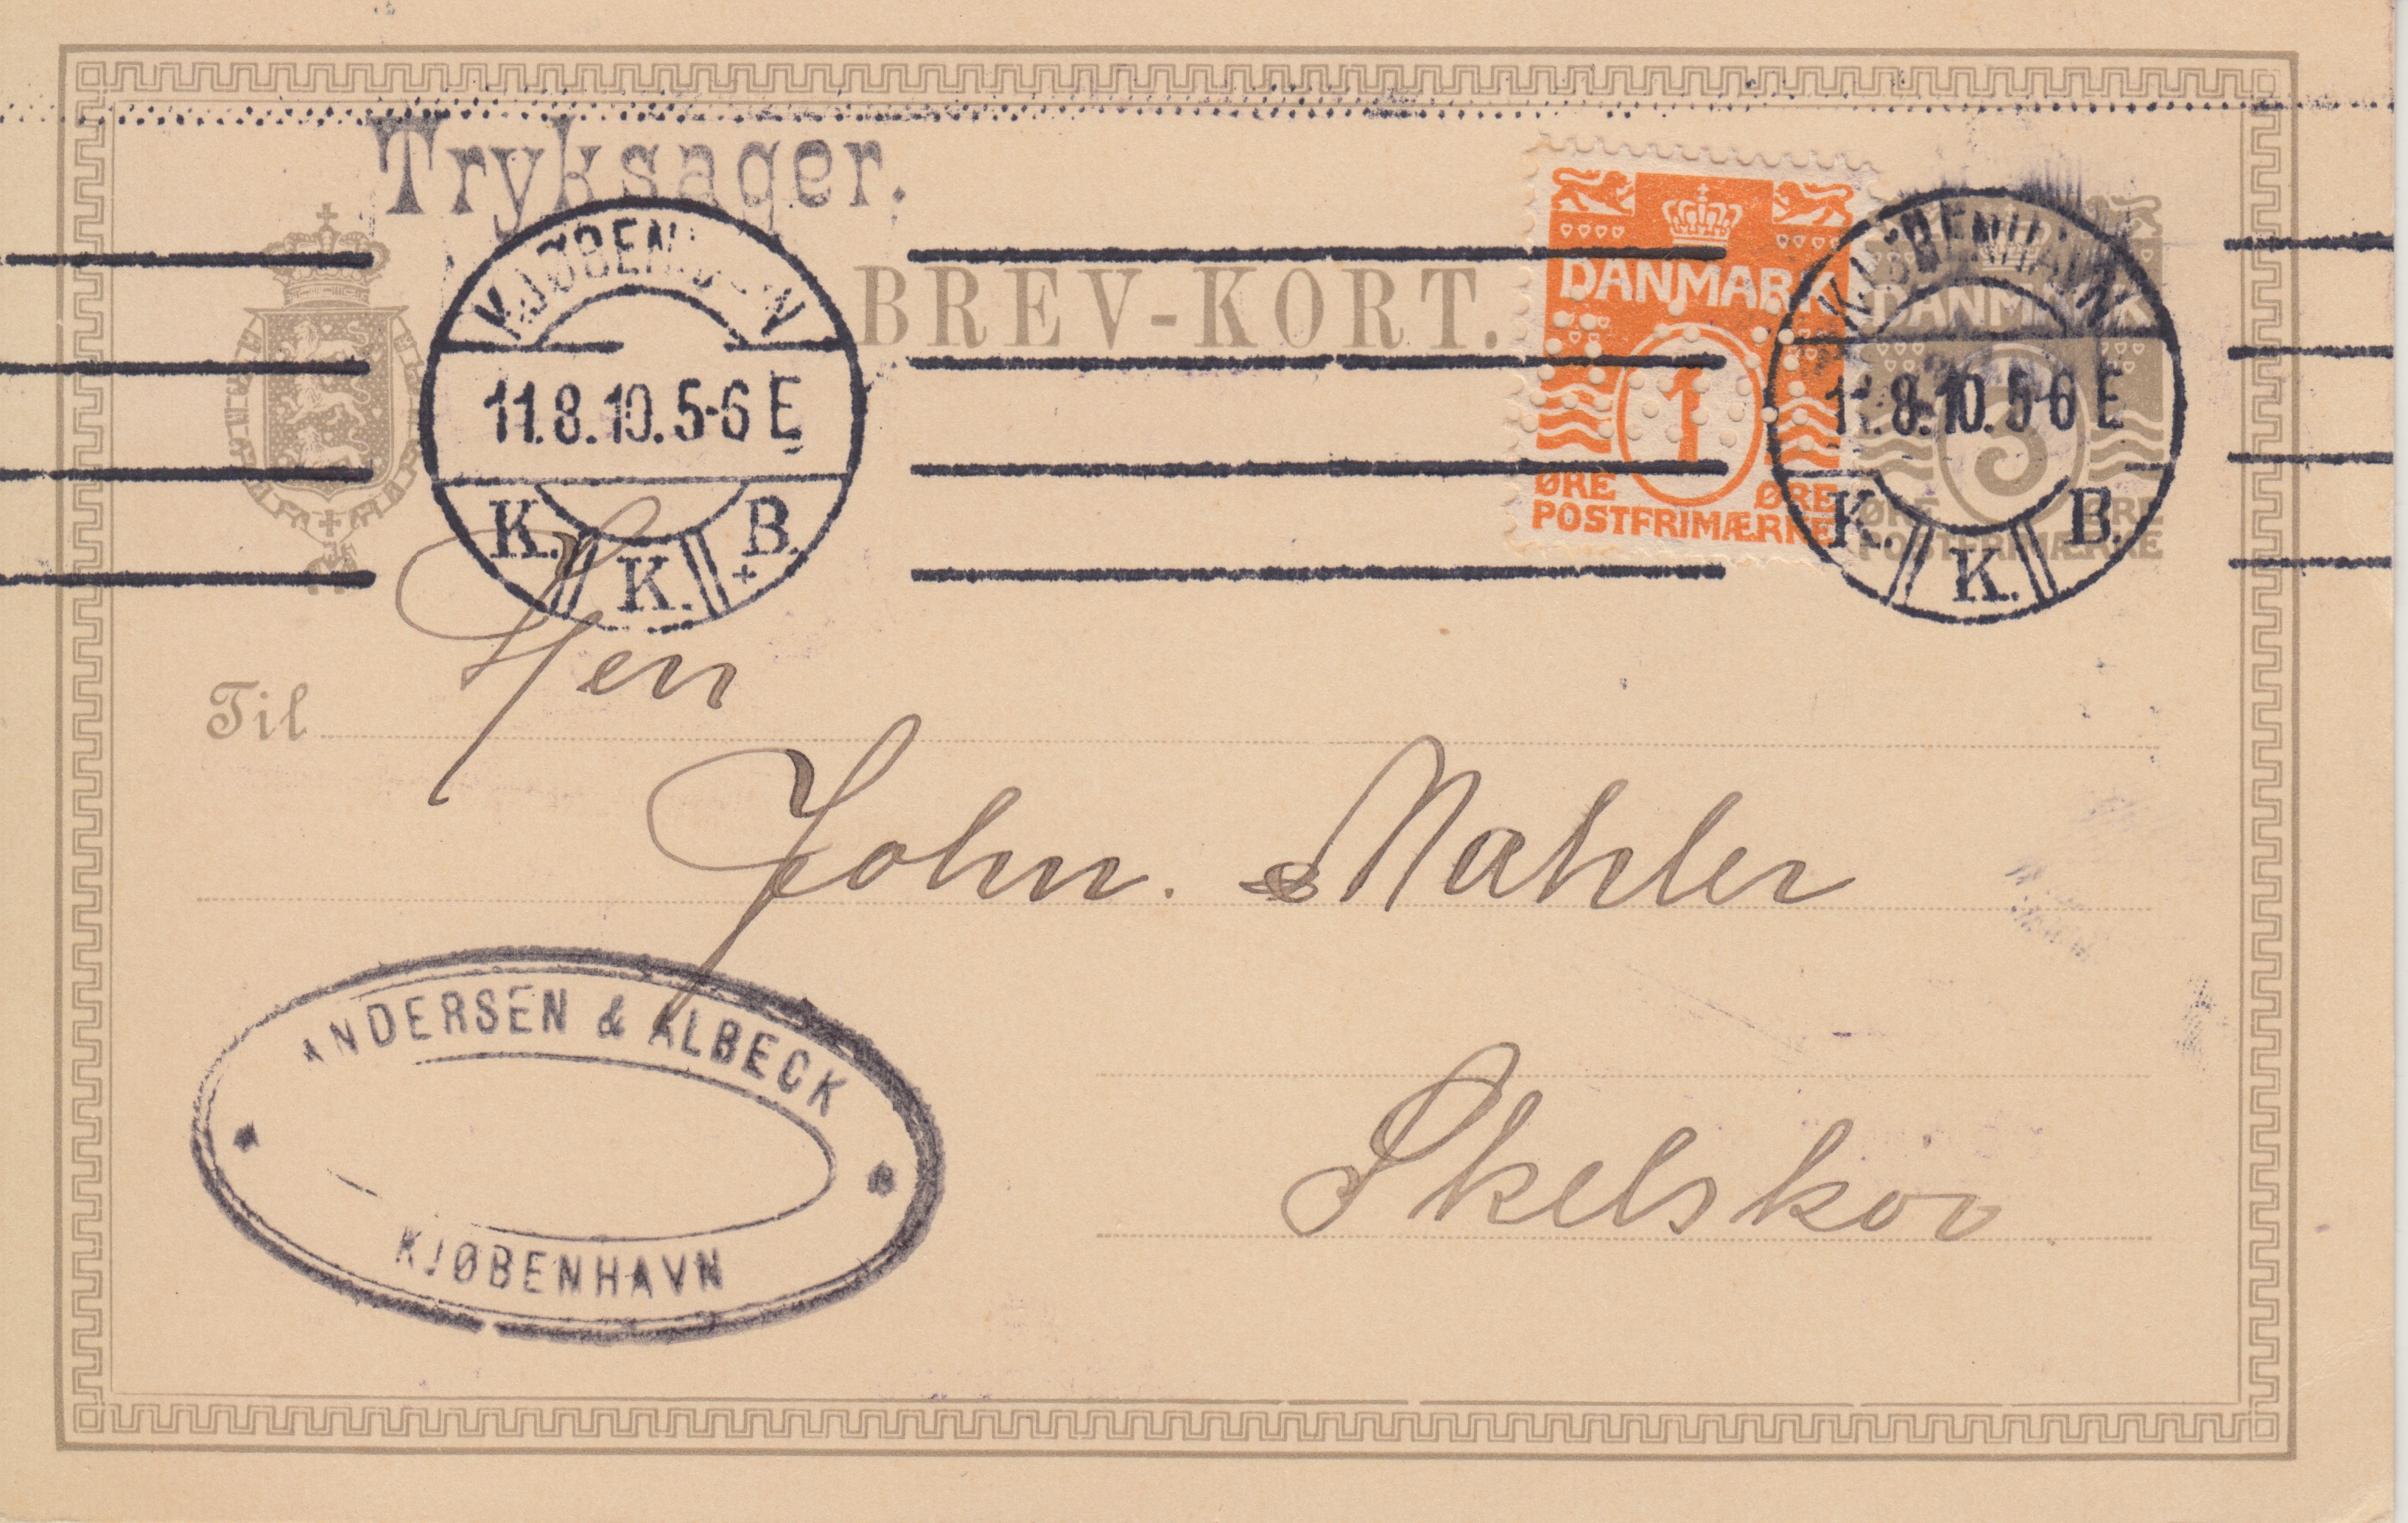 Tryksager.
BREV-KORT.
KJØBENHAVN
11.8.10. 5-6 E
K. K. B.
DANMARK
1
ØRE ØRE
POSTFRIMÆRKE
KJØBENHAVN
11.8.10. 5-6 E
K. K. B.
DANMARK
3
ØRE ØRE
POSTFRIMÆRKE
Til Herr
John. Mahler
ANDERSEN & ALBECK
KJØBENHAVN
Skelskör